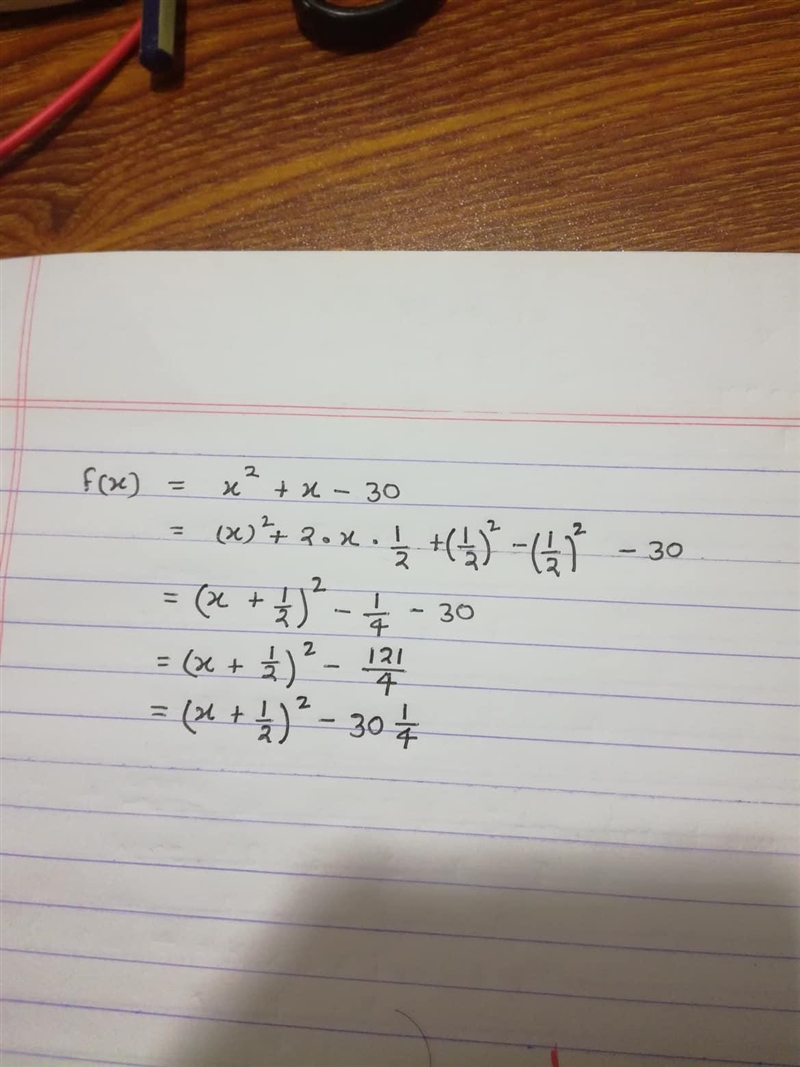 f(x) = x² + x - 30
= (x)² + 2 · x · 1/2 + (1/2)² - (1/2)² - 30
= (x + 1/2)² - 1/4 - 30
= (x + 1/2)² - 121/4
= (x + 1/2)² - 30 1/4